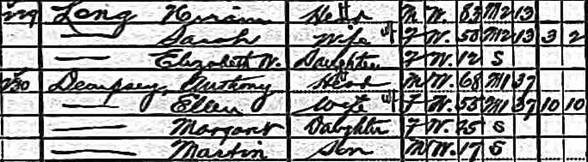 229 Long Hiram Head M W. 83 M2 13
— Sarah Wife F W. 50 M2 13 3 2
— Elizabeth W. Daughter F W. 12 S
230 Dempsey, Anthony Head M W. 68 M1 37
— Ellen Wife F W. 55 M1 37 10 10
— Margaret Daughter F W. 25 S
— Martin Son M W. 17 S